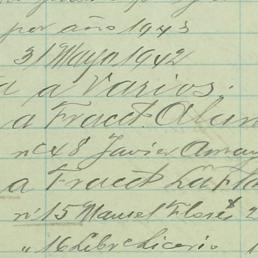 por año 1943
31 Mayo 1942
a Varios.
a Fracct. Alam
nº 48 Javier Arnau
a Fracct La Fl
nº 15 Manuel Flores
" 16 Libr Licerio